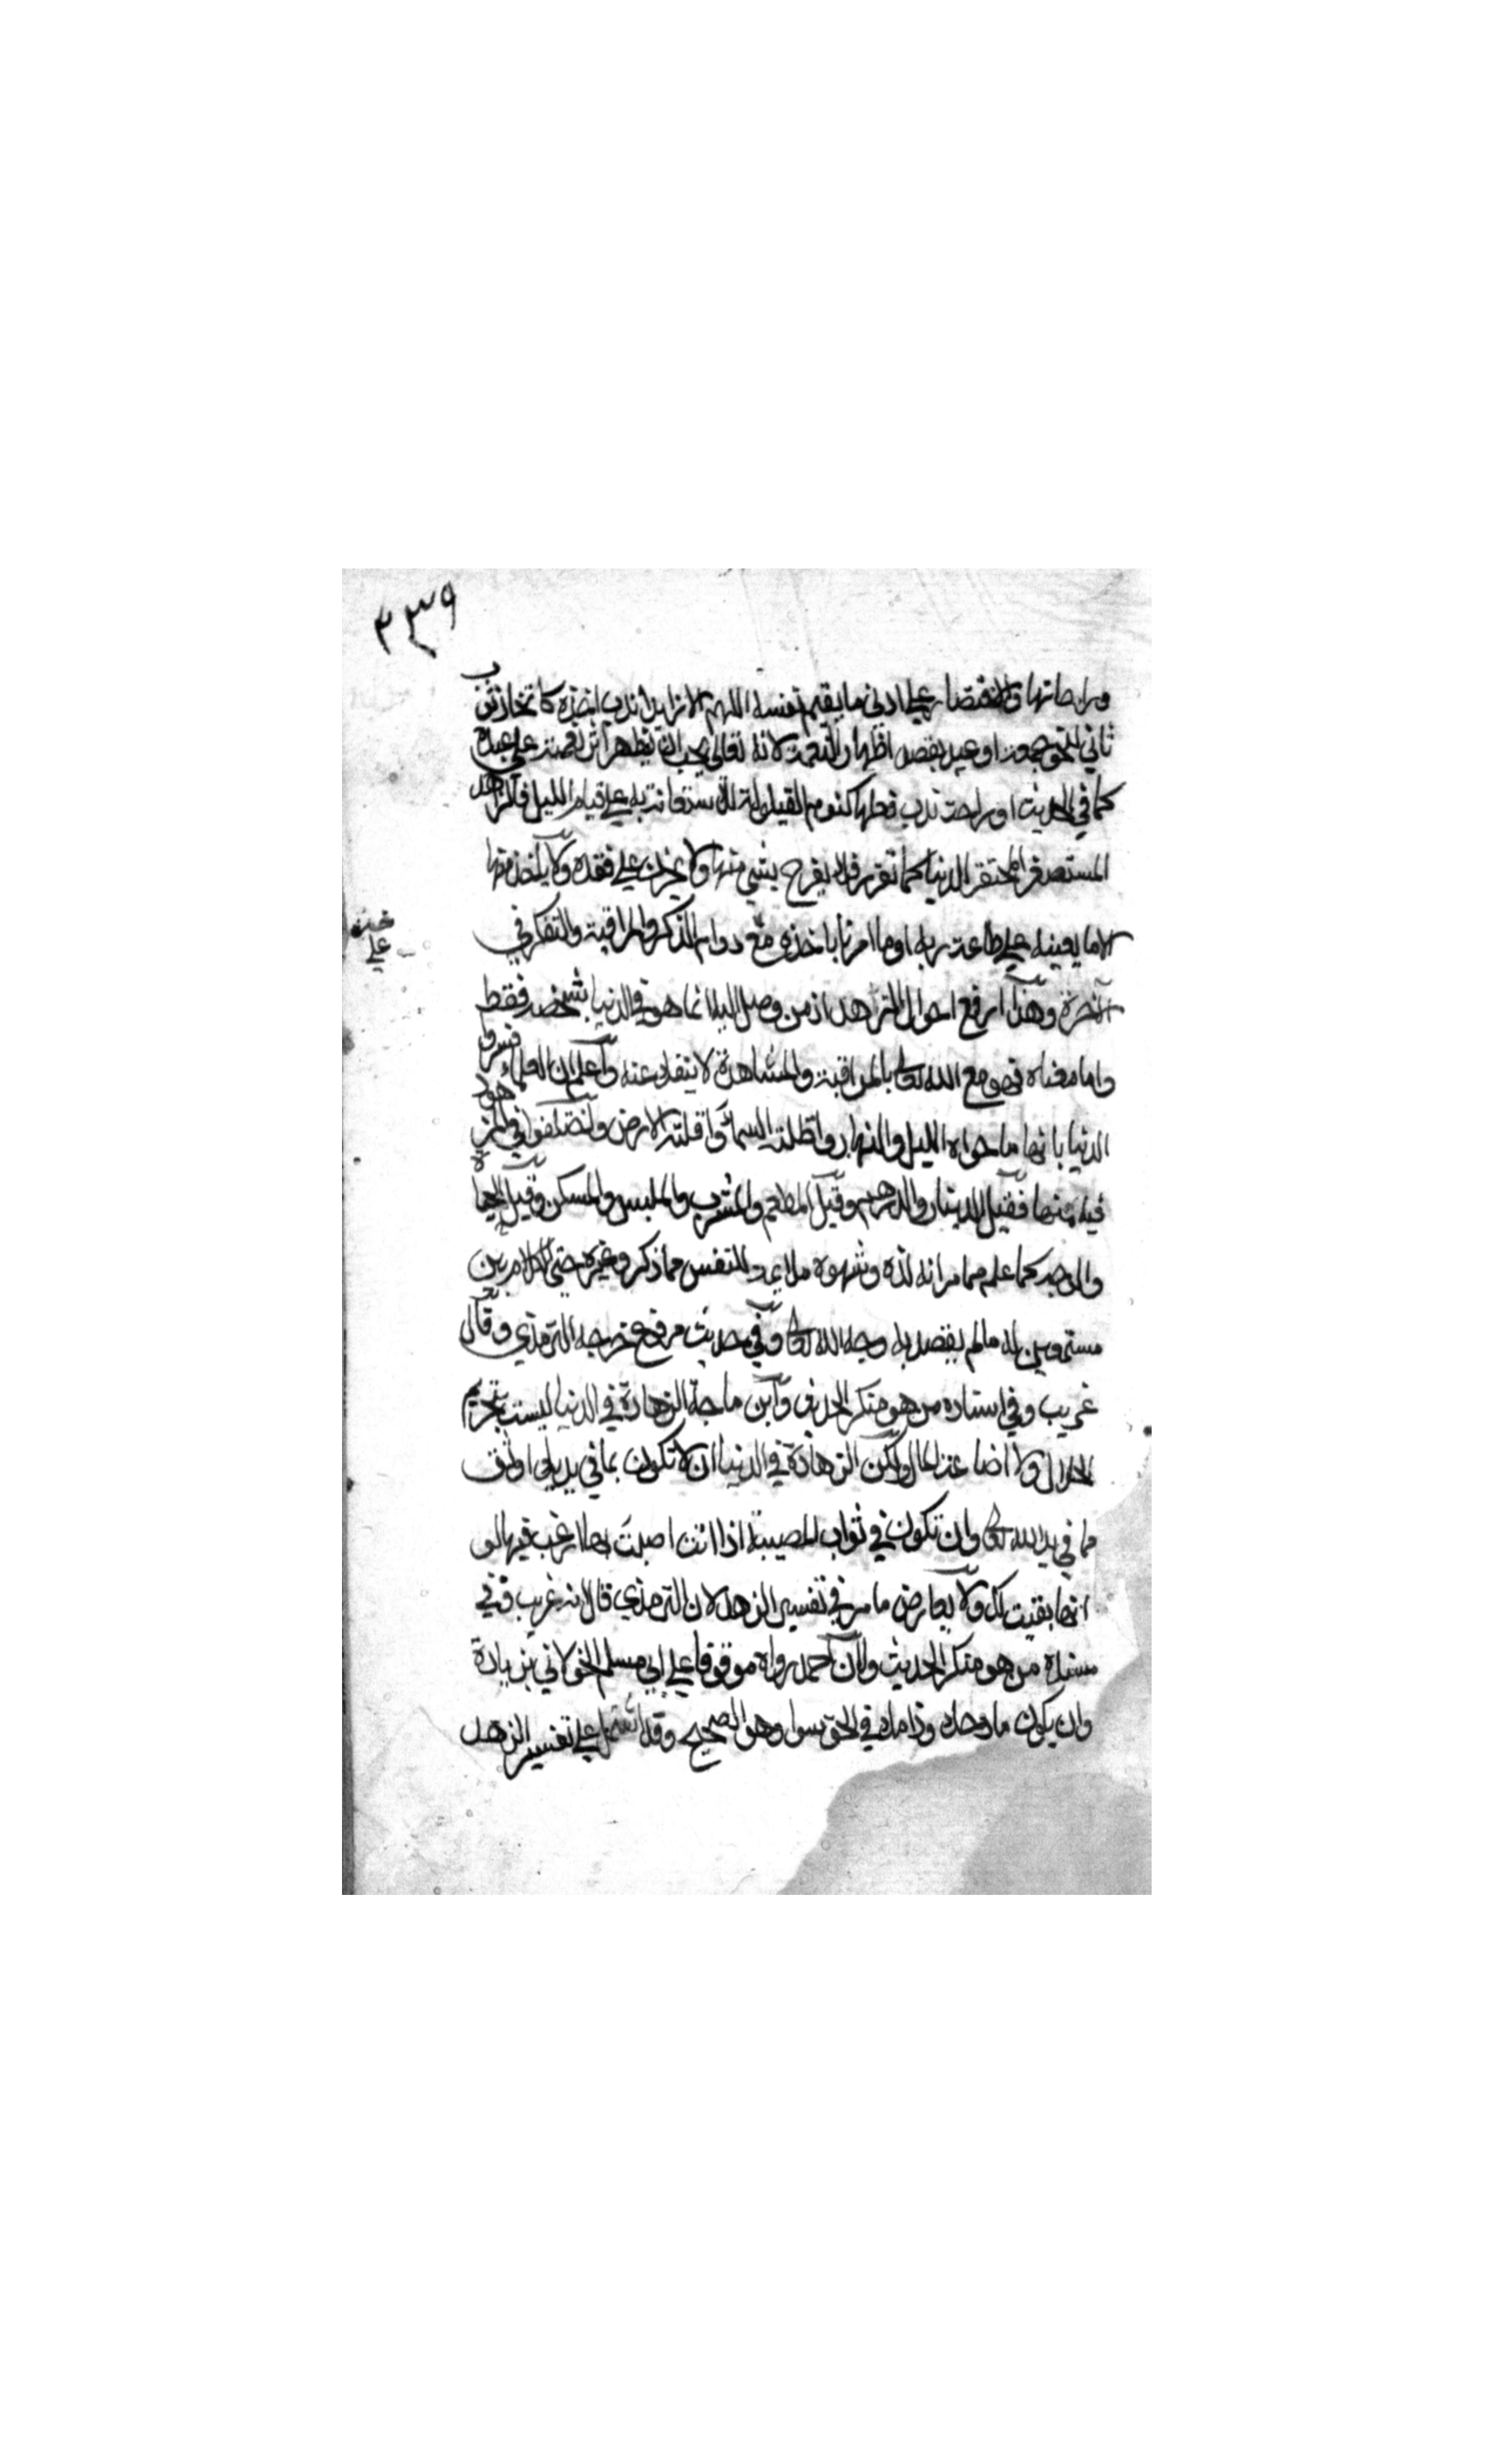 ٢٣٩
وراحاتها والاقتصار على ادنى ما يقيم نفسه اللهم الا ان ندب اخذه كاتخاذ ثوب
ثاني للتجمل جمعة او عيد بقصد اظهار النعمة لانه تعالى يحب ان يظهر اثر نعمته على عبده
كما في الحديث او راحة ندب فعلها كنوم القيلولة للاستعانة به على قيام الليل فالزاهد
المستصغر المحتقر للدنيا كما تقرر فلا يفرح بشي منها ولا يحزن على فقده ولا ياخذ منها
الا ما يعينه على طاعة ربه او ما امرنا باخذه مع دوام الذكر والمراقبة والتفكر في
الاخرة وهذا ارفع احوال الزاهد اذ من وصل اليه انما هو في الدنيا بشخصه فقط
واما معناه فهو مع الله تعالى بالمراقبة والمشاهدة لا ينفك عنه واعلم ان العلماء فسروا
الدنيا بانها ما حواه الليل والنهار واظلته السماء واقلته الارض واختلفوا في المزهود
فيه منها فقيل الدينار والدرهم وقيل المطعم والمشرب والملبس والمسكن وقيل الحياة
والوجه كما علم مما مر انه لذة وشهوة ملايمة للنفس مما ذكر وغيره حتى الكلام بين
مستمعين له ما لم يقصد به وجه الله تعالى وفي حديث مرفوع خرجه الترمذي وقال
غريب وفي اسناده من هو منكر الحديث وابن ماجة الزهادة في الدنيا ليست بتحريم
الحلال ولا اضاعة المال ولكن الزهادة في الدنيا ان لا تكون بما في يديك اوثق
مما في يد الله تعالى وان تكون في ثواب المصيبة اذا انت اصبت بها ارغب فيها لو
انها بقيت لك ولا يعارض ما مر في تفسير الزهد لان الترمذي قال انه غريب وفي
سنده من هو منكر الحديث ولان احمد رواه موقوفا على ابي مسلم الخولاني بزيادة
وان يكون مادحك وذامك في الحق سوا وهو الصحيح وقد اشتمل على تفسير الزهد